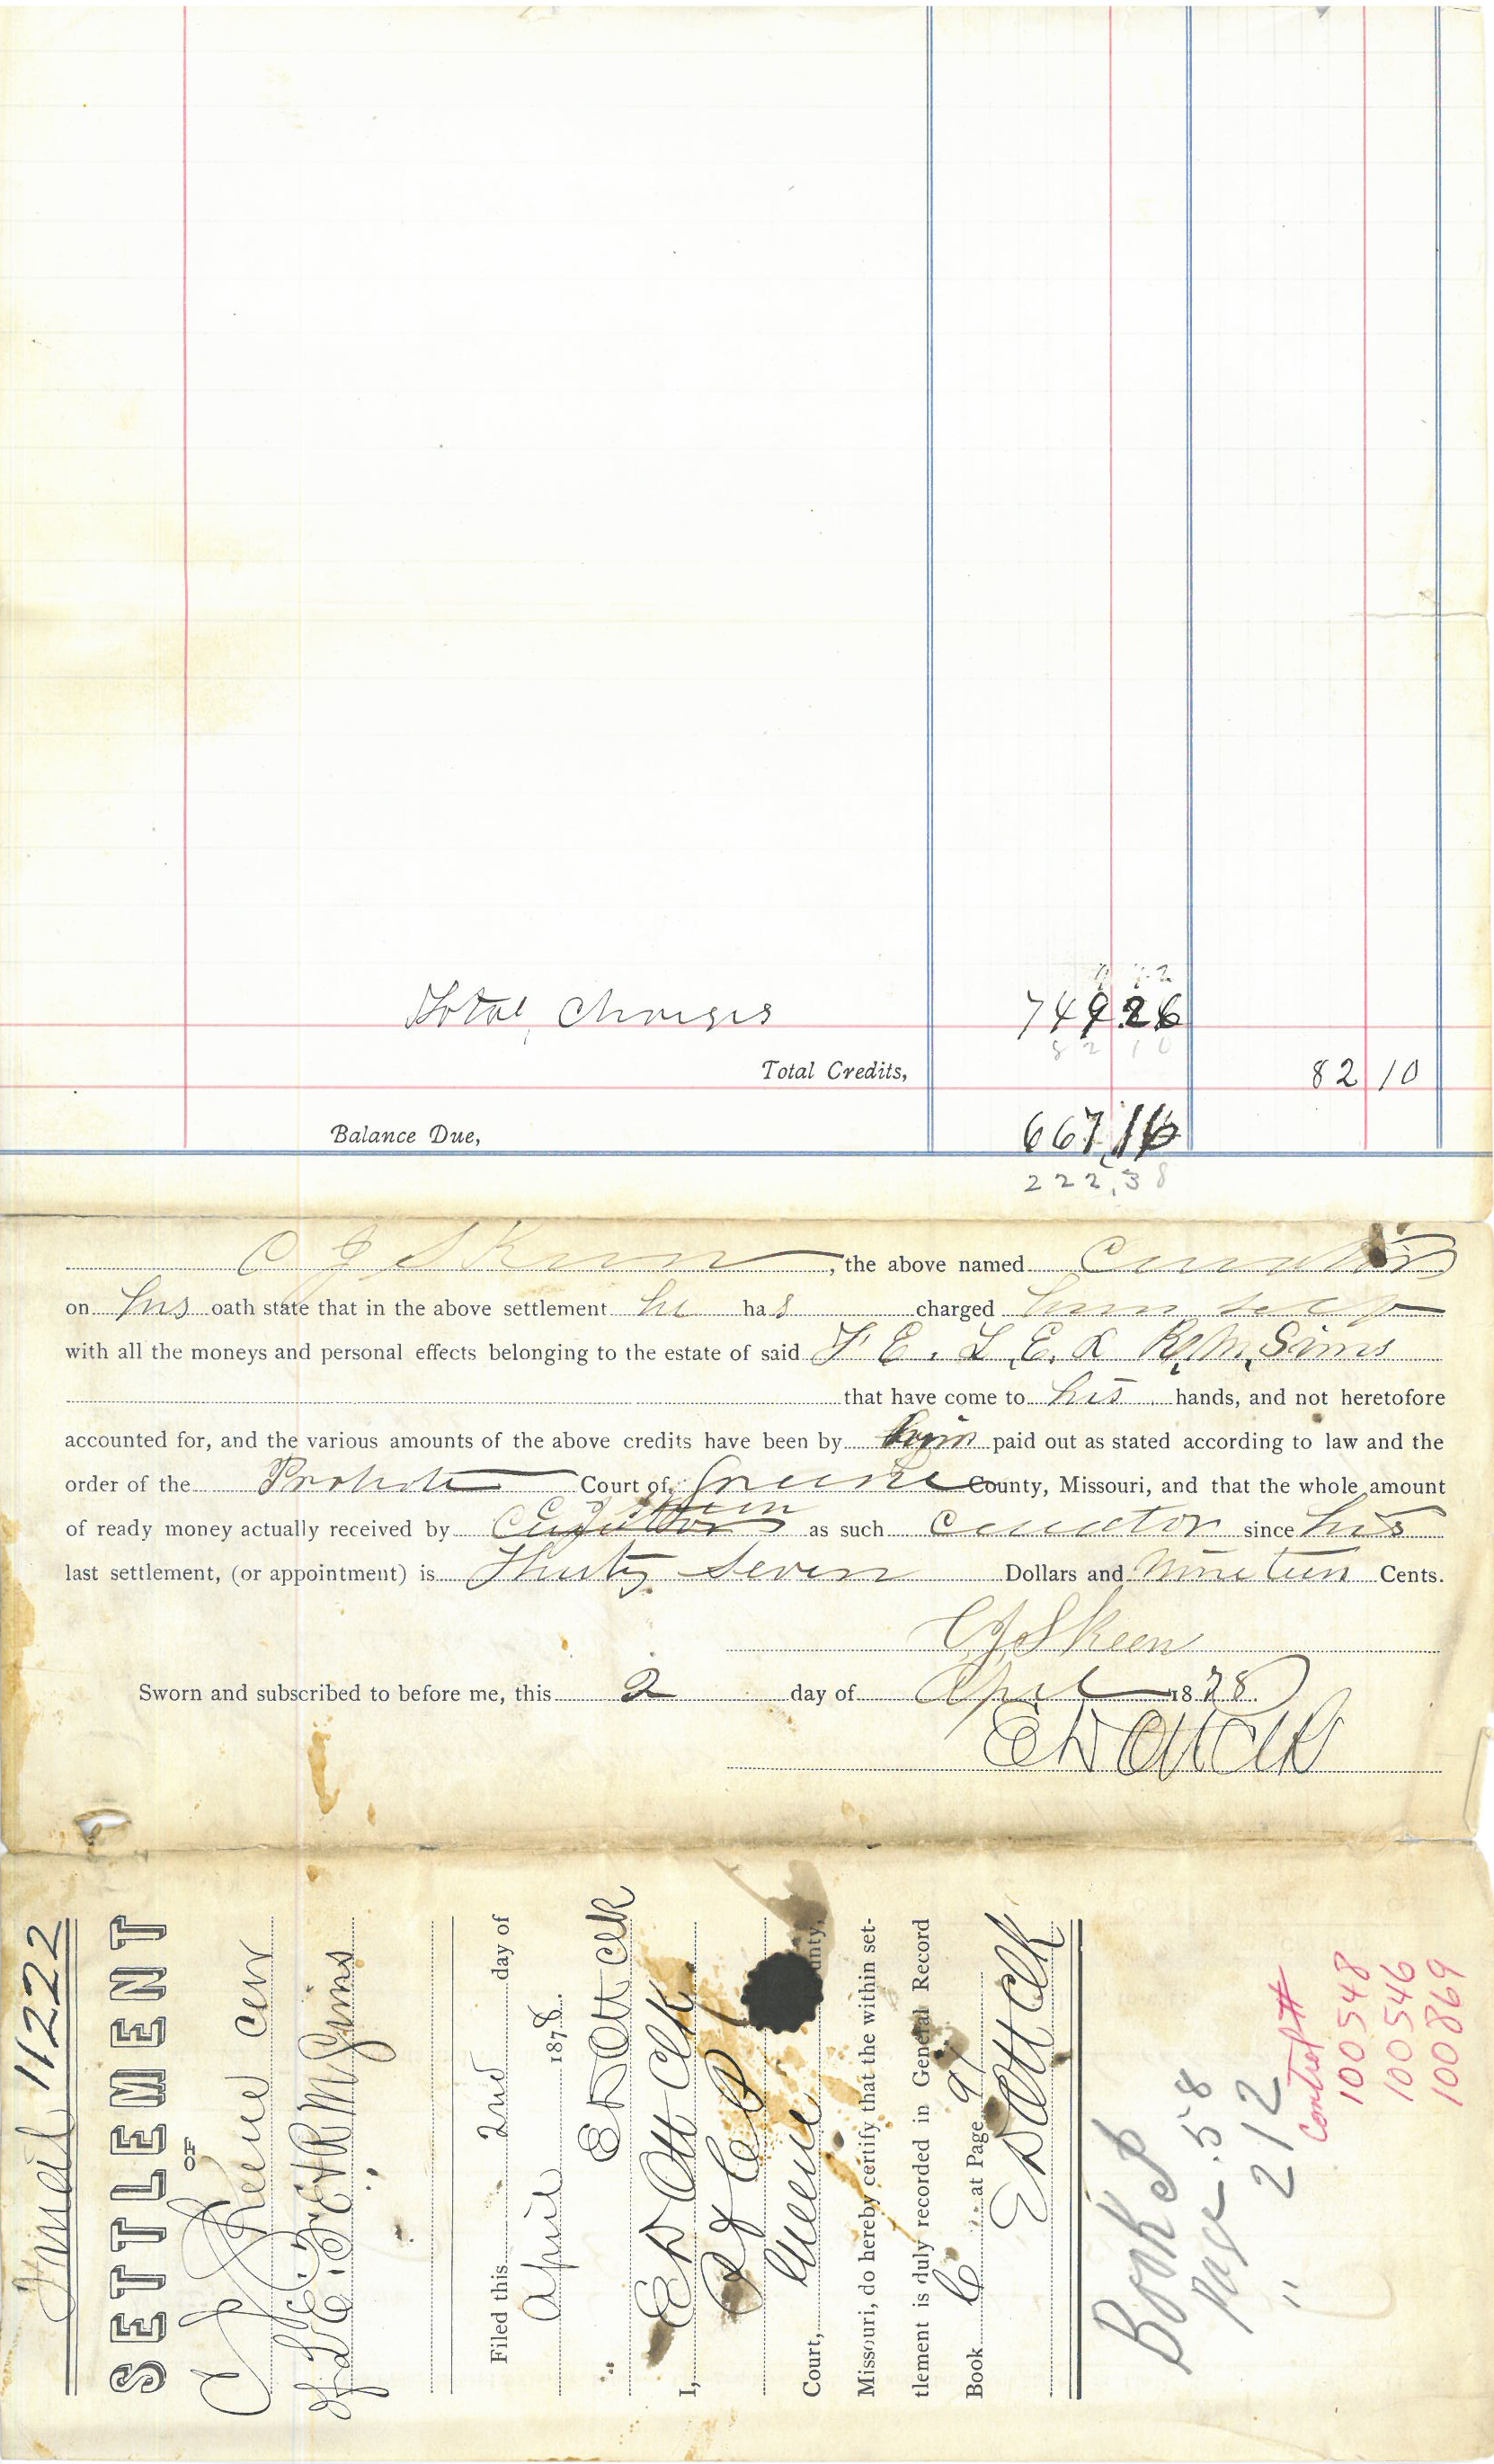 Total Charges 749.26
82 10
Total Credits, 82 10
Balance Due, 667.16
222.38
C J Skeen, the above named Curator
on his oath state that in the above settlement he has charged him self
with all the moneys and personal effects belonging to the estate of said F E. L. E. & R. M. Sims
that have come to his hands, and not heretofore
accounted for, and the various amounts of the above credits have been by him paid out as stated according to law and the
order of the Probate Court of Greene County, Missouri, and that the whole amount
of ready money actually received by as such curator since his
last settlement, (or appointment) is Thirty Seven Dollars and Nineteen Cents.
C J Skeen
Sworn and subscribed to before me, this 2 day of April 1878.
E D Ott Clk
11222
SETTLEMENT
OF
C J Skeen cur
& R M Sims
Filed this 2nd day of
April 1878.
E D Ott Clk
I, E D Ott Clk
Greene
Court, County,
Missouri, do hereby certify that the within set-
tlement is duly recorded in General Record
Book C at Page 9
E D Ott Clk
Book
Page 58
" 212
Control #
100548
100546
100869